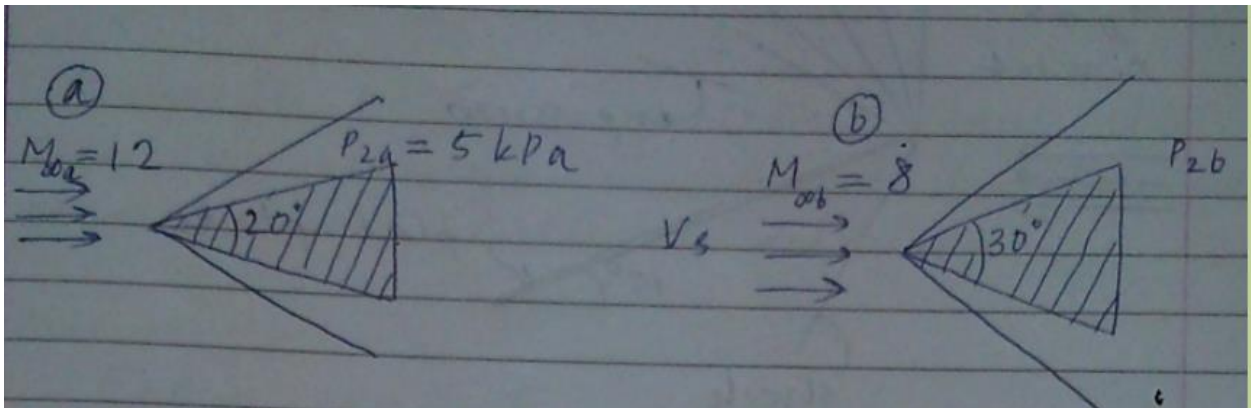 ⓐ
M∞a = 12
P2a = 5 kPa
20°
Vs
ⓑ
M∞b = 8
P2b
30°